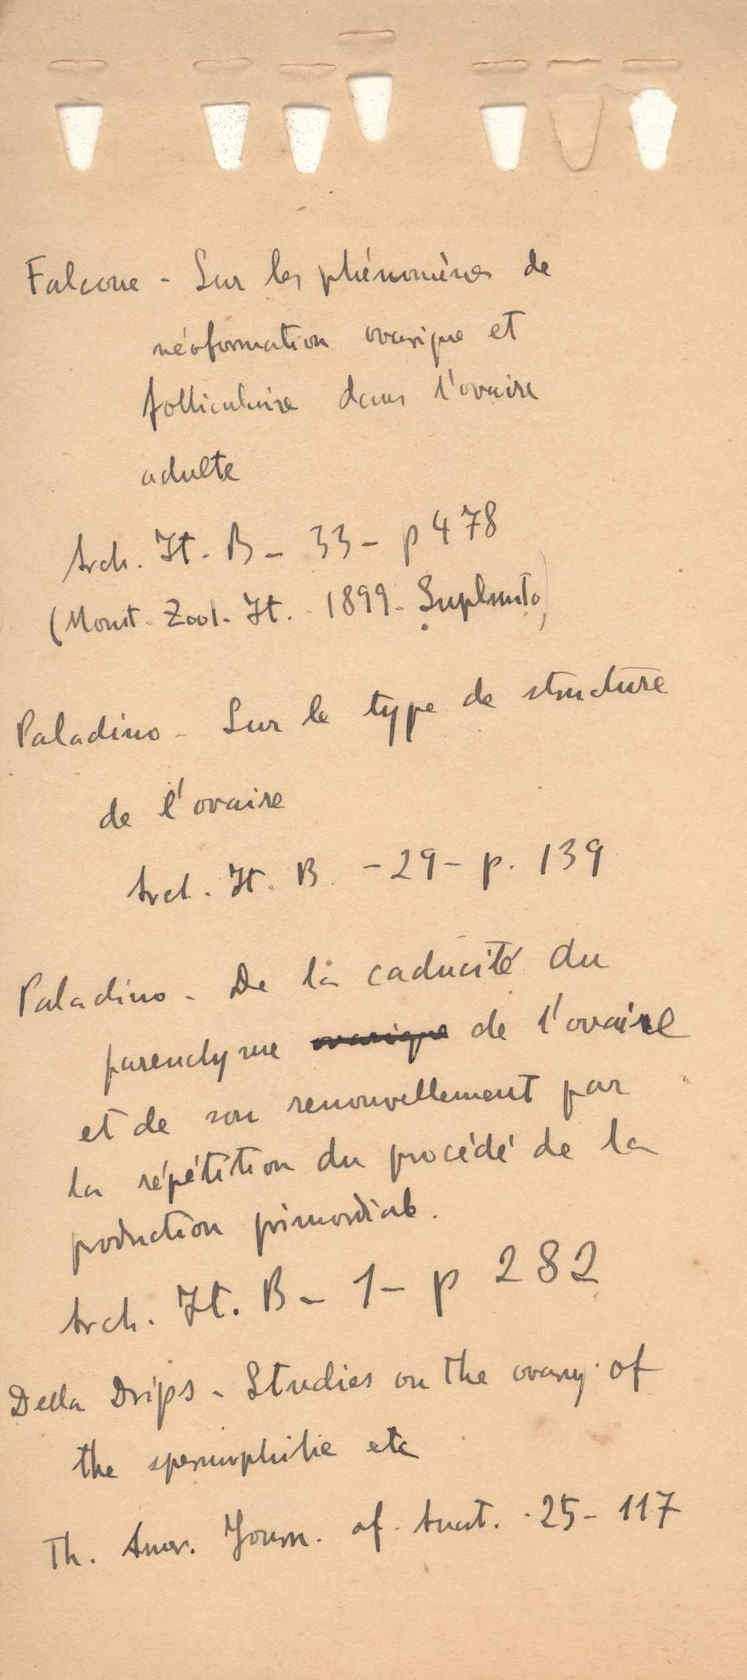 Falcone - Sur les phénomènes de
néoformation ovarique et
folliculaire dans l'ovaire
adulte
Arch. It. B - 33 - p 478
(Monit. Zool. It. - 1899 - Suplmto)
Paladino - Sur le type de structure
de l'ovaire
Arch. It. B. - 29 - p. 139
Paladino - De la caducité du
parenchyme ovarique de l'ovaire
et de son renouvellement par
la répétition du procédé de la
production primordiale.
Arch. It. B - 1 - p 282
Della Drips - Studies on the ovary of
the spermophile etc
Th. Amer. Journ. of Anat. - 25 - 117